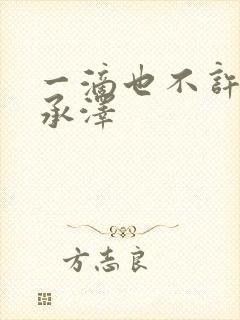 一滴也不許
承澤
方志良